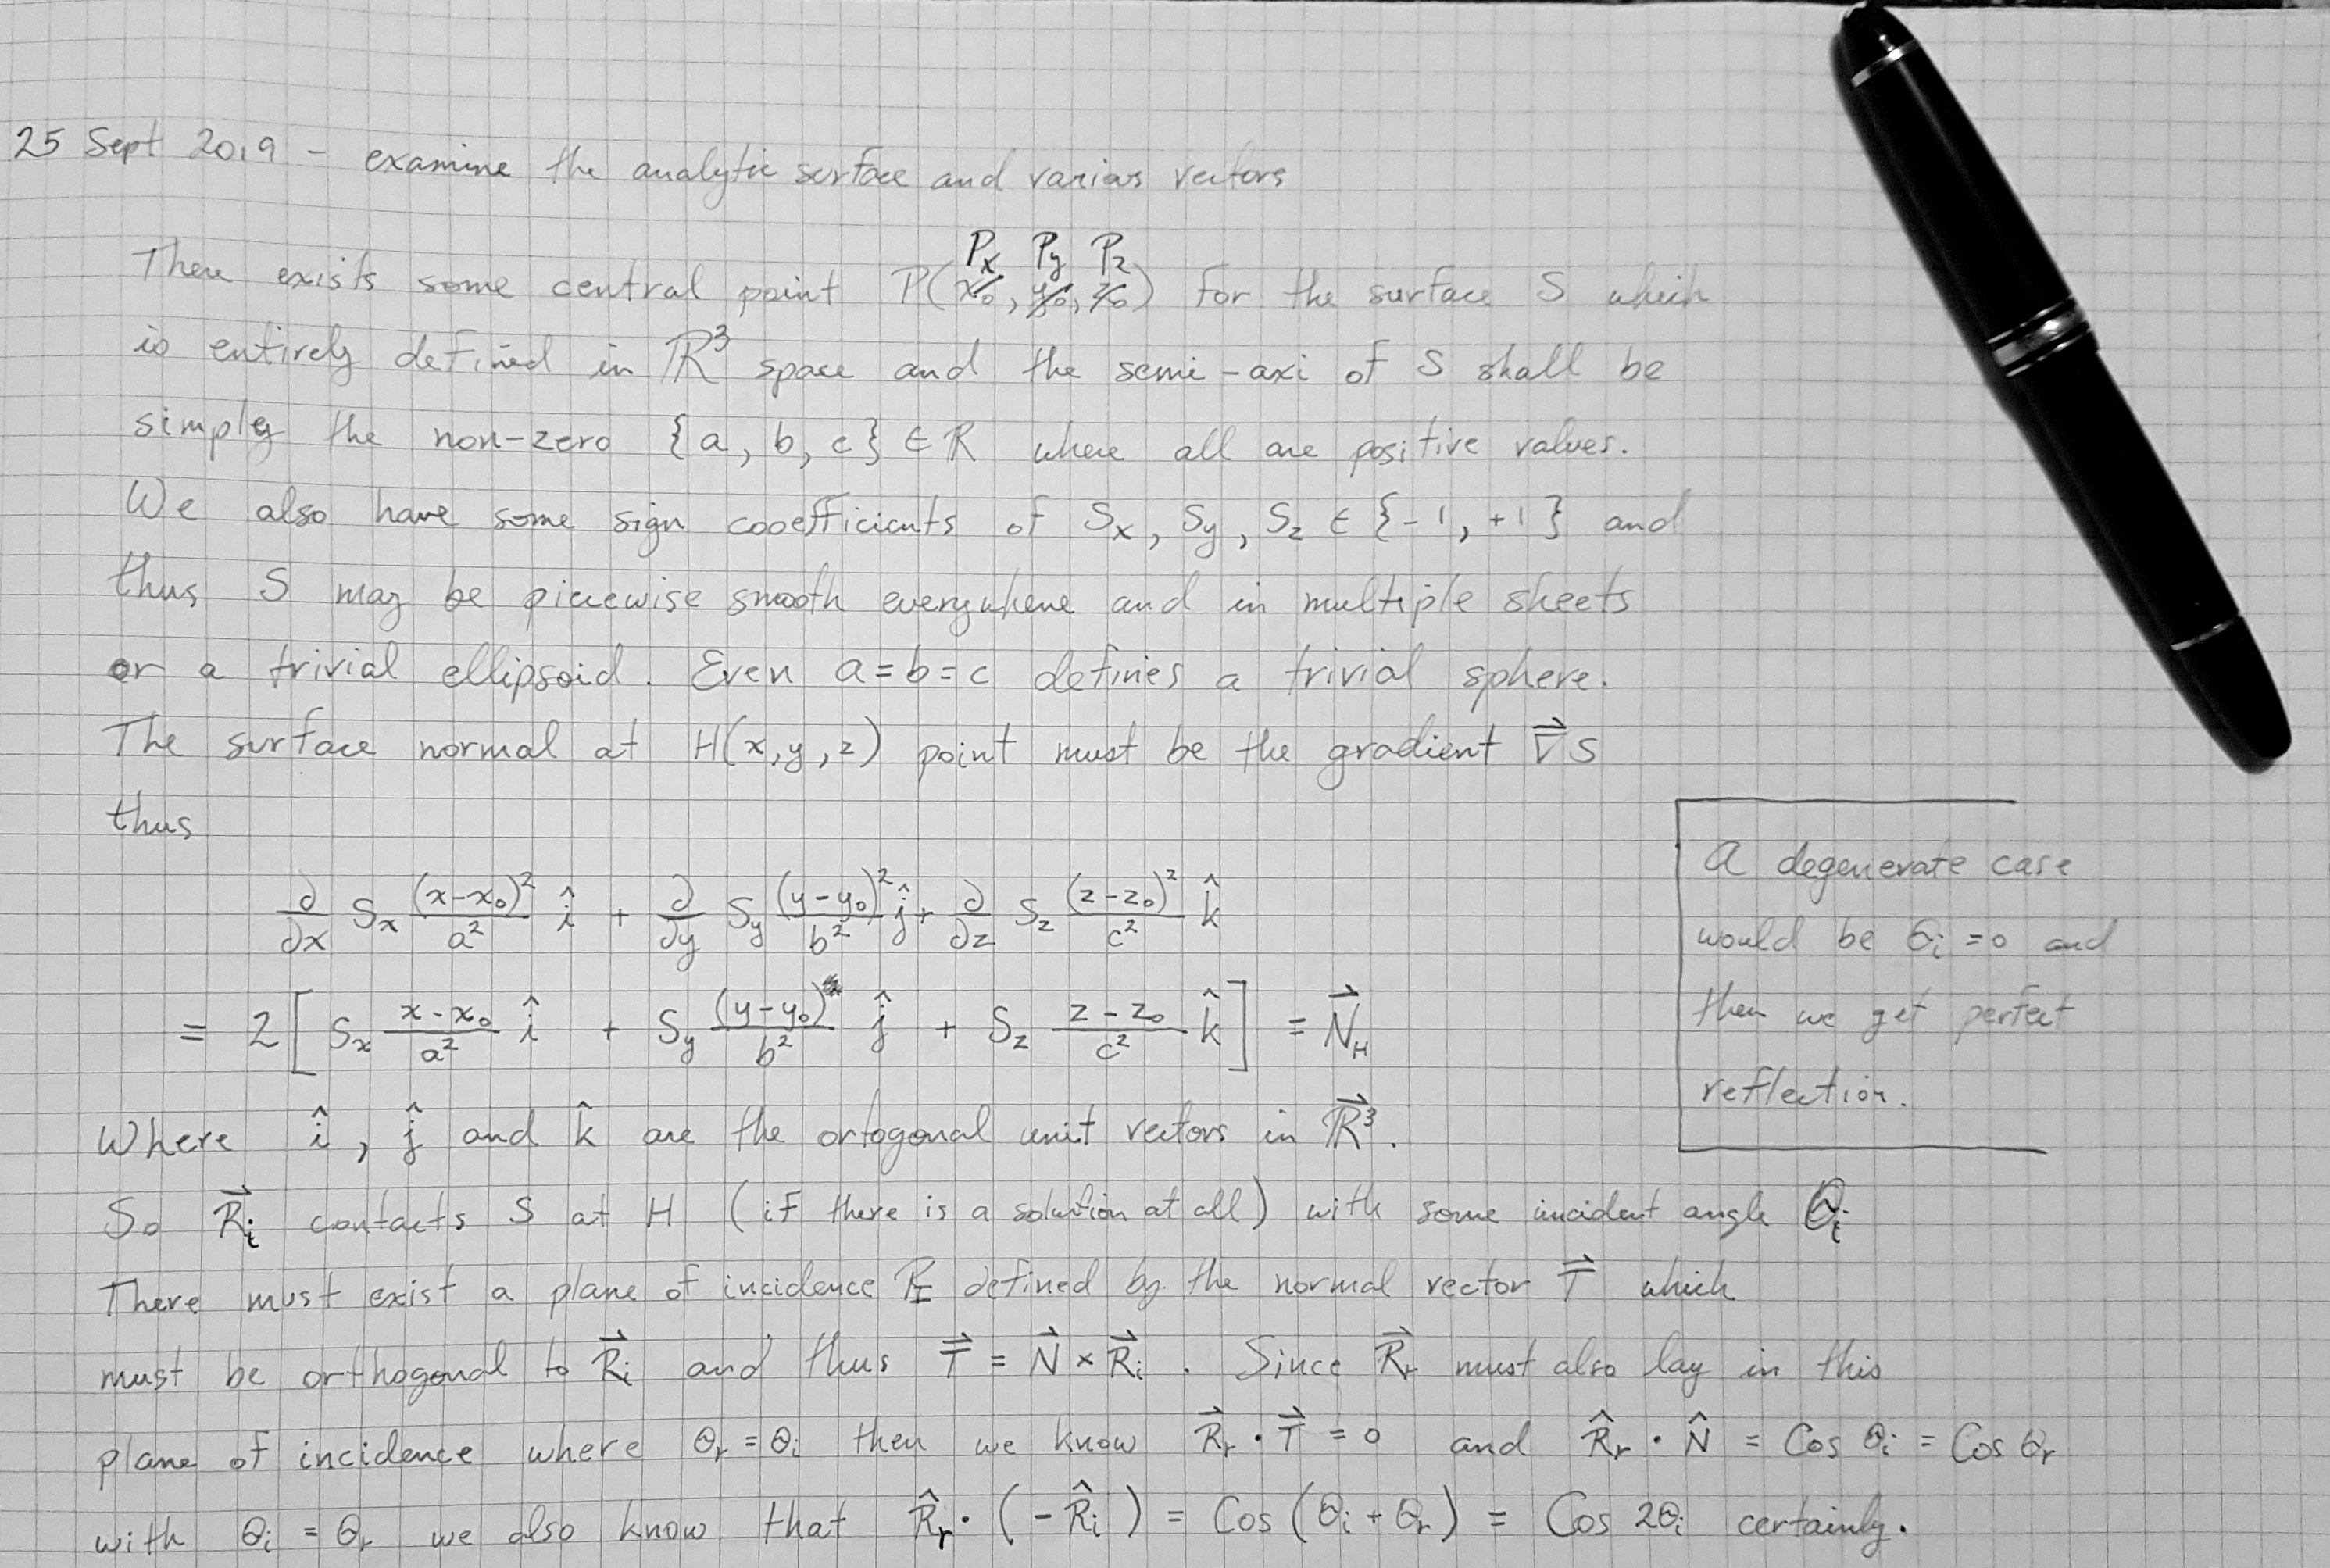 25 Sept 2019 - examine the analytic surface and various vectors
Px Py Pz
There exists some central point P(x0, y0, z0) for the surface S which
is entirely defined in ℝ³ space and the semi-axi of S shall be
simply the non-zero {a, b, c} ∈ ℝ where all are positive values.
We also have some sign cooefficients of Sx, Sy, Sz ∈ {-1, +1} and
thus S may be piecewise smooth everywhere and in multiple sheets
or a trivial ellipsoid. Even a = b = c defines a trivial sphere.
The surface normal at H(x, y, z) point must be the gradient ∇⃗S
thus
∂/∂x Sx (x-x0)²/a² î + ∂/∂y Sy (y-y0)²/b² ĵ + ∂/∂z Sz (z-z0)²/c² k̂
= 2 [ Sx x-x0/a² î + Sy (y-y0)/b² ĵ + Sz z-z0/c² k̂ ] = N⃗H
A degenerate case
would be θi = 0 and
then we get perfect
reflection.
Where î, ĵ and k̂ are the ortogonal unit vectors in ℝ⃗³.
So R⃗i contacts S at H (if there is a solution at all) with some incident angle θi
There must exist a plane of incidence PI defined by the normal vector T⃗ which
must be orthogonal to R⃗i and thus T⃗ = N⃗ × R⃗i. Since R⃗r must also lay in this
plane of incidence where θr = θi then we know R⃗r · T⃗ = 0 and R̂r · N̂ = Cos θi = Cos θr
with θi = θr we also know that R̂r · (-R̂i) = Cos (θi + θr) = Cos 2θi certainly.